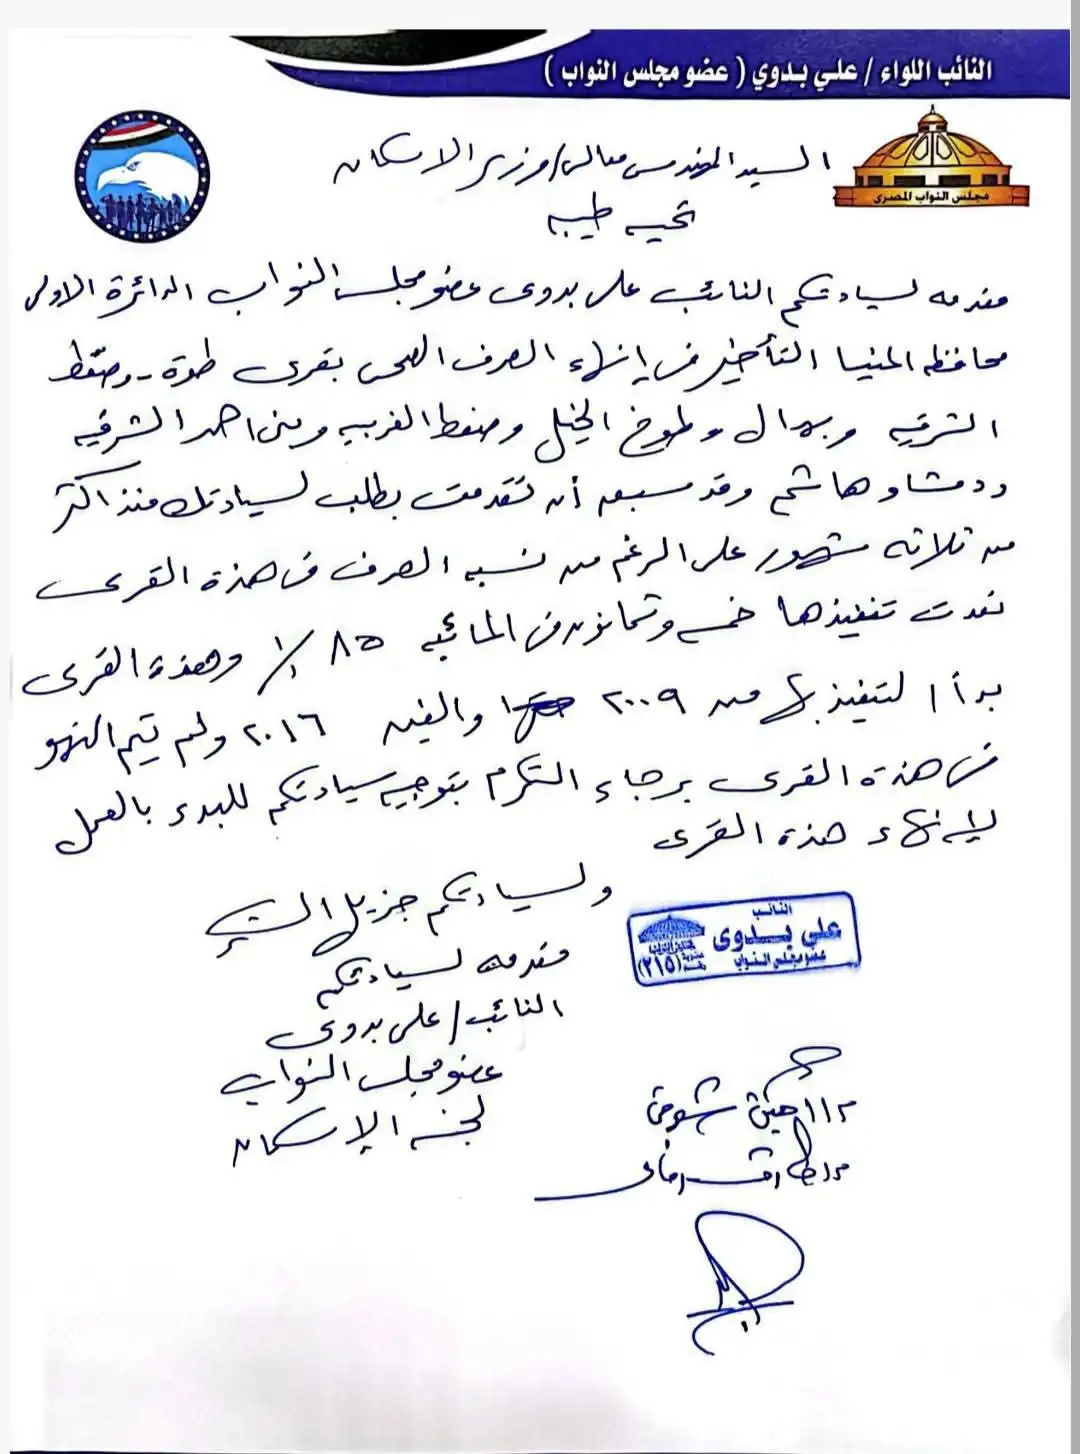 النائب اللواء / علي بدوي ( عضو مجلس النواب )
مجلس النواب المصرى
السيد المهندس معالى / وزير الاسكان
تحيه طيبه
مقدمه لسيادتكم النائب على بدوى عضو مجلس النواب الدائرة الاولى
محافظه المنيا التأخير فى إنهاء الصرف الصحى بقرى طوة - وصفط
الشرقيه و بهدال و طوخ الخيل وصفط الغربيه وبنى احمد الشرقيه
ودمشاو هاشم وقد سبق أن تقدمت بطلب لسيادتك منذ اكثر
من ثلاثه شهور على الرغم من نسبه الصرف فى هذة القرى
نفذت تنفيذها خمسه وثمانون فى المائيه ٨٥ ٪ وهذة القرى
بدأ التنفيذ بها من ٢٠٠٩ والفين ٢٠١٦ ولم يتم النهو
فى هذة القرى برجاء التكرم بتوجيه سيادتكم للبدء بالعمل
لإنهاء هذة القرى
ولسيادتكم جزيل الشكر
مقدمه لسيادتكم
النائب / على بدوى
عضو مجلس النواب
لجنه الإسكان
النائب
على بدوى
عضو مجلس النواب
(٢١٥)